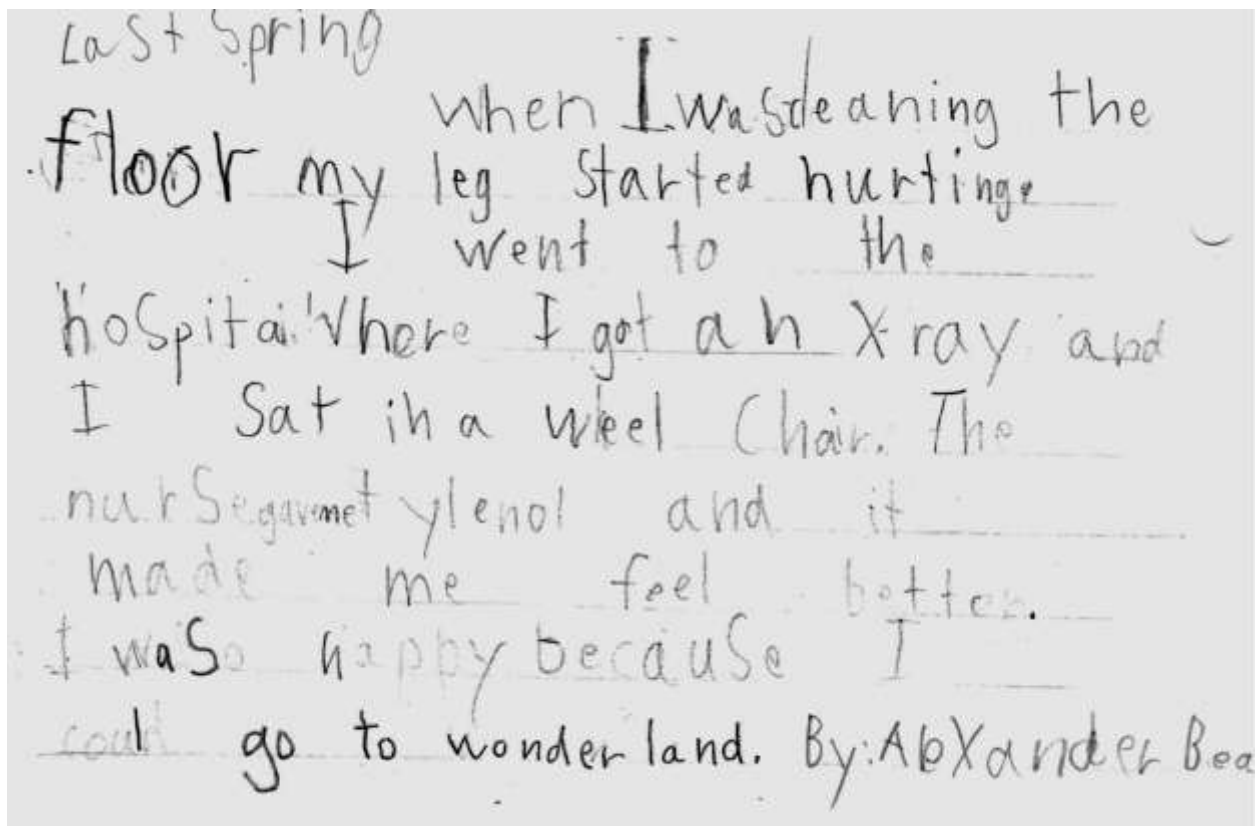 Last Spring
when I was cleaning the
floor my leg started hurting.
I went to the
hospital. Where I got an X-ray and
I Sat in a wheel Chair. The
nurse gave me tylenol and it
made me feel better.
I was so happy because I
could go to wonderland. By: Alexander Bea